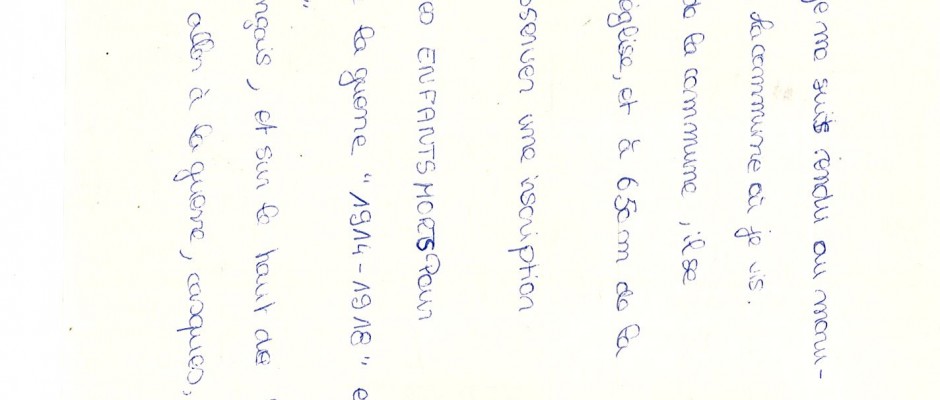 je me suis rendu au monu-
la commune où je vis.
de la commune, il se
église, et à 65cm de la
bserver une inscription
ses ENFANTS MORTS Pour
la guerre "1914-1918" e
"
nçais, et sur le haut de
aller à la guerre, casques,